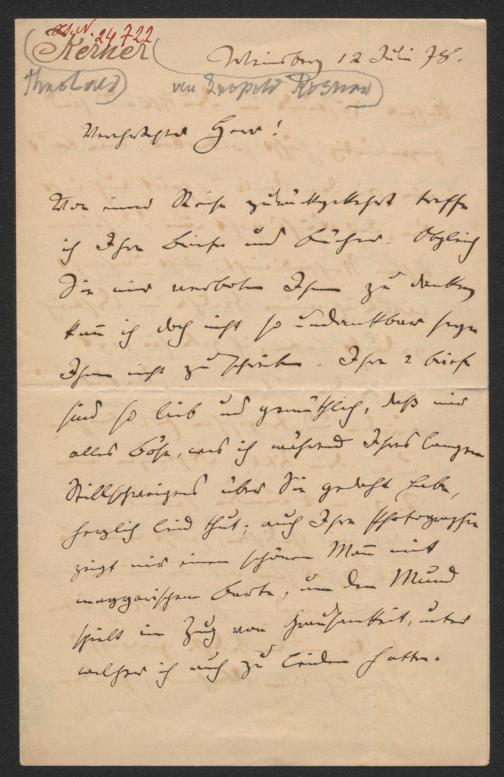 J.N. 24722
Kerner
Weinsberg 12 Juli 78.
(Theobald) von Leopold Rosner
Verehrtester Herr!
Von einer Reise zurückgekehrt treffe
ich Ihre Briefe und Bücher. Obgleich
Sie mir verboten Ihnen zu danken
kann ich doch nicht so undankbar seyn
Ihnen nicht zu schreiben. Ihre 2 Briefe
sind so lieb und gemüthlich, daß mir
alles Böse, was ich während Ihres langen
Stillschweigens über Sie gedacht habe,
herzlich leid thut; auch Ihre Photographie
zeigt mir einen schönen Mann mit
magyarischem Barte, um den Mund
spielt ein Zug von Grausamkeit, unter
welcher ich auch zu leiden hatte.